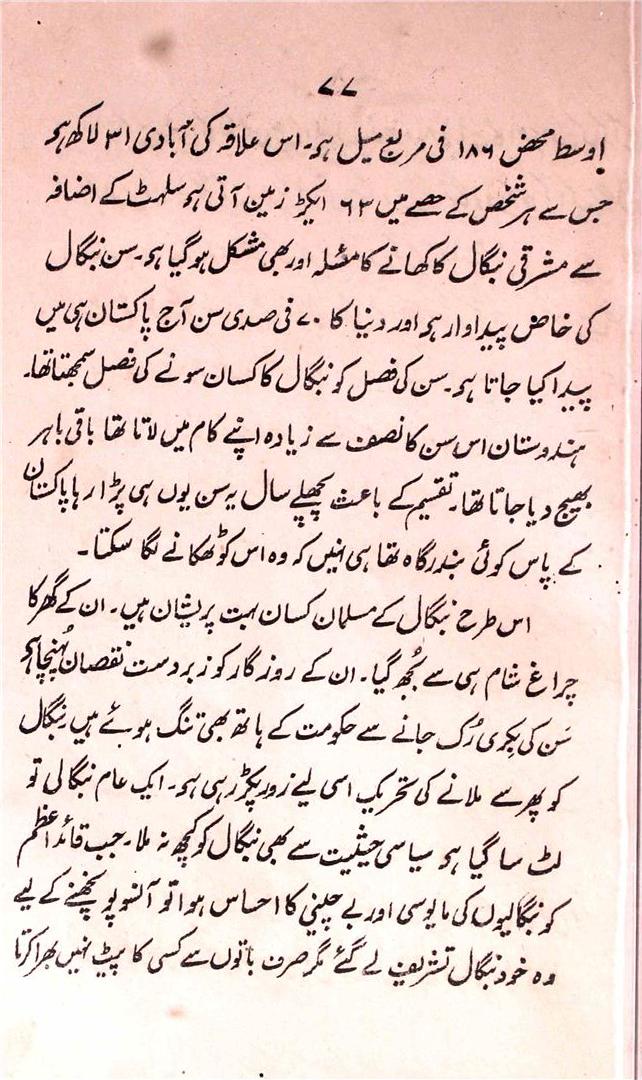 ۷۷
اوسط محض ۱۸۶ فی مربع میل ہی۔ اس علاقہ کی آبادی ۳۱ لاکھ ہی
جس سے ہر شخص کے حصے میں ۶۳ ایکڑ زمین آتی ہی سلہٹ کے اضافہ
سے مشرقی بنگال کا کھانے کا مسئلہ اور بھی مشکل ہو گیا ہی۔ سن بنگال
کی خاص پیداوار ہی اور دنیا کا ۷۰ فی صدی سن آج پاکستان ہی میں
پیدا کیا جاتا ہی۔ سن کی فصل کو بنگال کا کسان سونے کی فصل سمجھتا تھا۔
ہندوستان اس سن کا نصف سے زیادہ اپنے کام میں لاتا تھا باقی باہر
بھیج دیا جاتا تھا۔ تقسیم کے باعث پچھلے سال یہ سن یوں ہی پڑا رہا پاکستان
کے پاس کوئی بندرگاہ تھا ہی نہیں کہ وہ اس کو ٹھکانے لگا سکتا۔
اس طرح بنگال کے مسلمان کسان بہت پریشان ہیں۔ ان کے گھر کا
چراغ شام ہی سے بُجھ گیا۔ ان کے روزگار کو زبردست نقصان پہُنچا ہی
سَن کی بِکری رُک جانے سے حکومت کے ہاتھ بھی تنگ ہوئے ہیں۔ بنگال
کو پھر سے ملانے کی تحریک اسی لیے زور پکڑ رہی ہی۔ ایک عام بنگالی تو
لٹ سا گیا ہی سیاسی حیثیت سے بھی بنگال کو کچھ نہ ملا۔ جب قائداعظم
کو بنگالیوں کی مایوسی اور بے چینی کا احساس ہوا تو آنسو پونچھنے کے لیے
وہ خود بنگال تشریف لے گئے مگر صرف باتوں سے کسی کا پیٹ نہیں بھرا کرتا